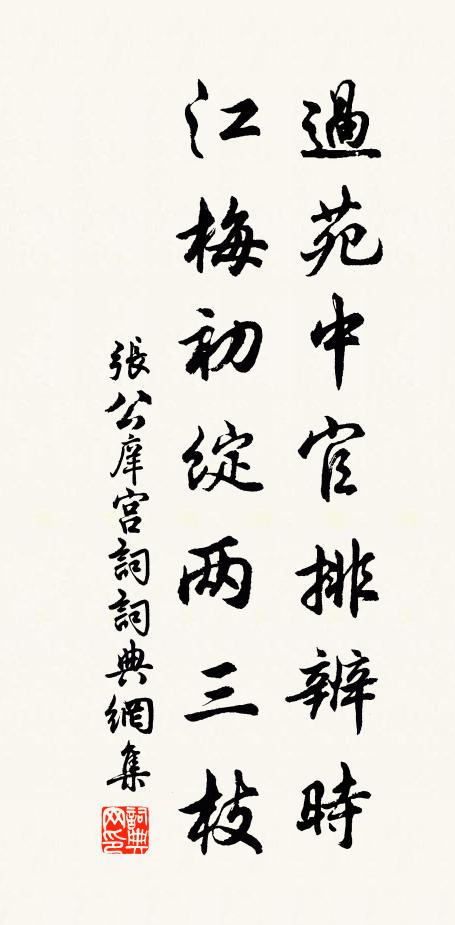 過苑中官排辦時
江梅初綻两三枝
張公庠宮詞詞典網集
詞典网印